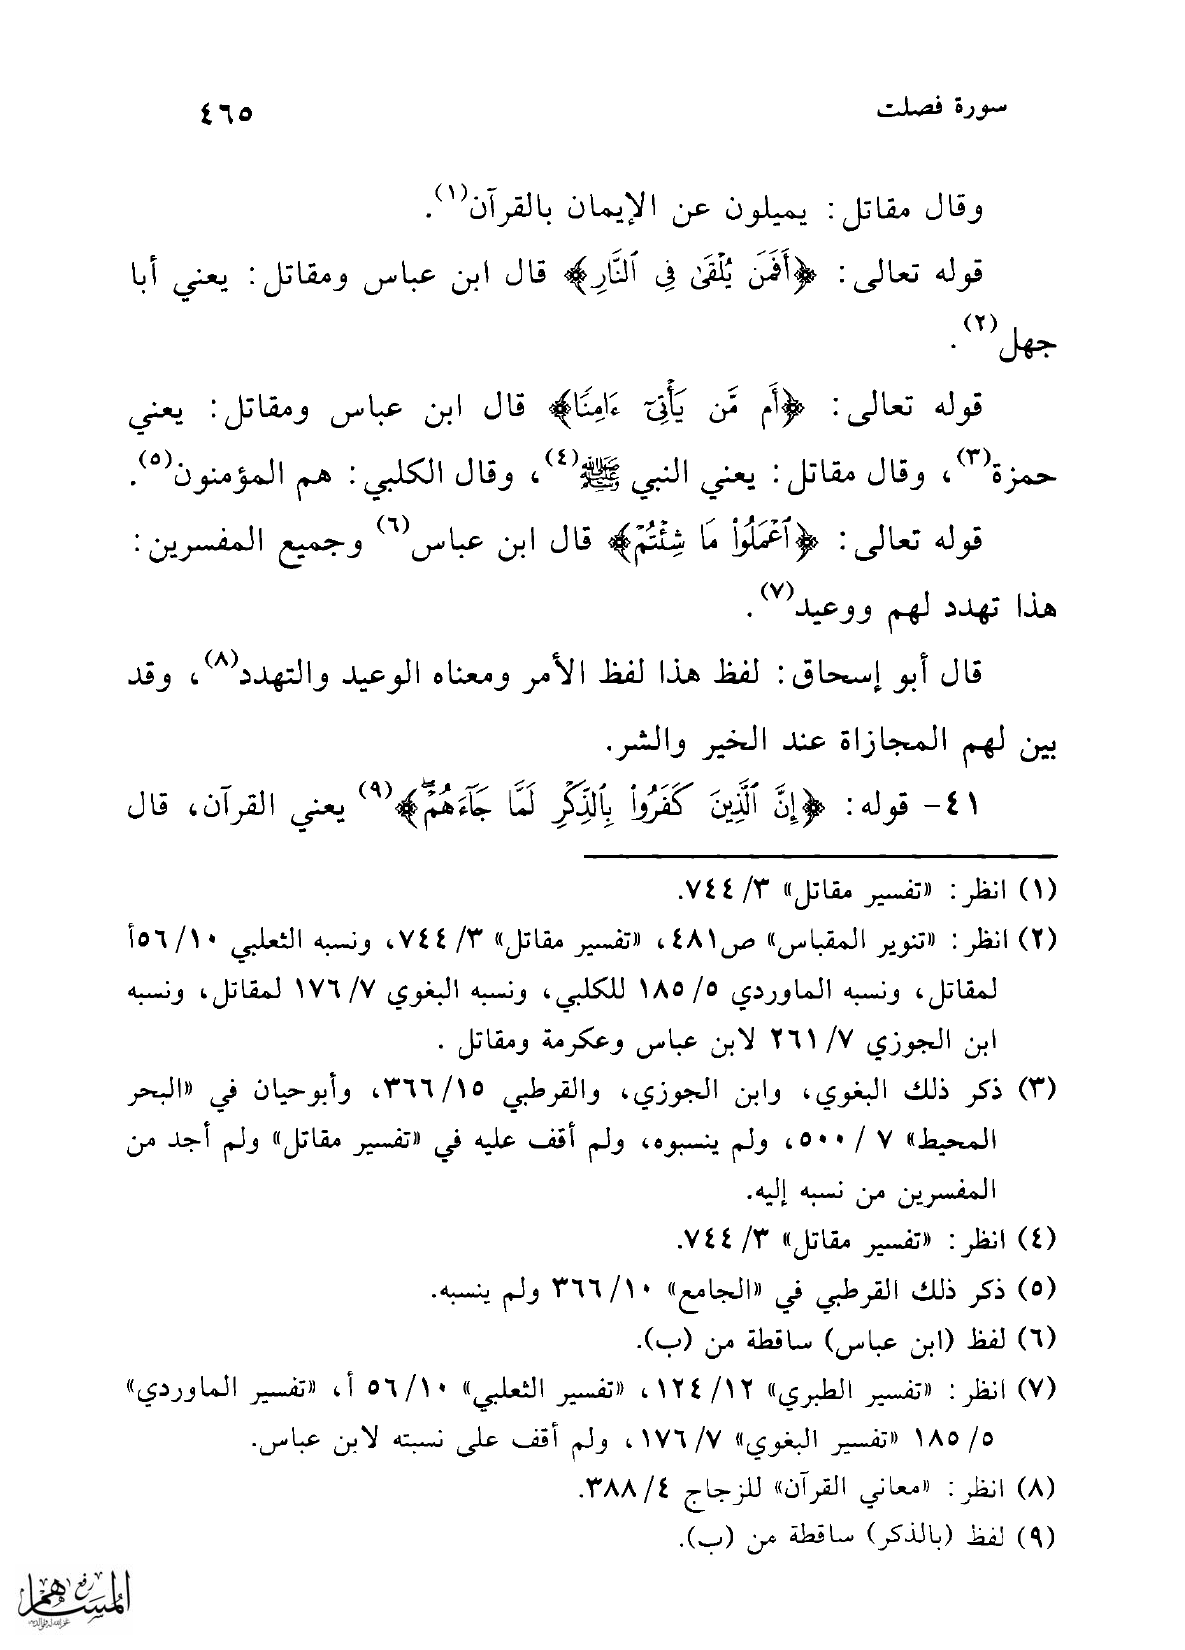 سورة فصلت ٤٦٥
وقال مقاتل: يميلون عن الإيمان بالقرآن(١).
قوله تعالى: ﴿أَفَمَن يُلْقَىٰ فِي ٱلنَّارِ﴾ قال ابن عباس ومقاتل: يعني أبا
جهل(٢).
قوله تعالى: ﴿أَم مَّن يَأْتِيٓ ءَامِنًا﴾ قال ابن عباس ومقاتل: يعني
حمزة(٣)، وقال مقاتل: يعني النبي ﷺ(٤)، وقال الكلبي: هم المؤمنون(٥).
قوله تعالى: ﴿ٱعْمَلُوا۟ مَا شِئْتُمْ﴾ قال ابن عباس(٦) وجميع المفسرين:
هذا تهدد لهم ووعيد(٧).
قال أبو إسحاق: لفظ هذا لفظ الأمر ومعناه الوعيد والتهدد(٨)، وقد
بين لهم المجازاة عند الخير والشر.
٤١- قوله: ﴿إِنَّ ٱلَّذِينَ كَفَرُوا۟ بِٱلذِّكْرِ لَمَّا جَآءَهُمْ ۖ﴾(٩) يعني القرآن، قال
(١) انظر: «تفسير مقاتل» ٣/ ٧٤٤.
(٢) انظر: «تنوير المقباس» ص٤٨١، «تفسير مقاتل» ٣/ ٧٤٤، ونسبه الثعلبي ١٠/ ٥٦أ
لمقاتل، ونسبه الماوردي ٥/ ١٨٥ للكلبي، ونسبه البغوي ٧/ ١٧٦ لمقاتل، ونسبه
ابن الجوزي ٧/ ٢٦١ لابن عباس وعكرمة ومقاتل .
(٣) ذكر ذلك البغوي، وابن الجوزي، والقرطبي ١٥/ ٣٦٦، وأبوحيان في «البحر
المحيط» ٧ / ٥٠٠، ولم ينسبوه، ولم أقف عليه في «تفسير مقاتل» ولم أجد من
المفسرين من نسبه إليه.
(٤) انظر: «تفسير مقاتل» ٣/ ٧٤٤.
(٥) ذكر ذلك القرطبي في «الجامع» ١٠/ ٣٦٦ ولم ينسبه.
(٦) لفظ (ابن عباس) ساقطة من (ب).
(٧) انظر: «تفسير الطبري» ١٢/ ١٢٤، «تفسير الثعلبي» ١٠/ ٥٦ أ، «تفسير الماوردي»
٥/ ١٨٥ «تفسير البغوي» ٧/ ١٧٦، ولم أقف على نسبته لابن عباس.
(٨) انظر: «معاني القرآن» للزجاج ٤/ ٣٨٨.
(٩) لفظ (بالذكر) ساقطة من (ب).
رفع
المساهم